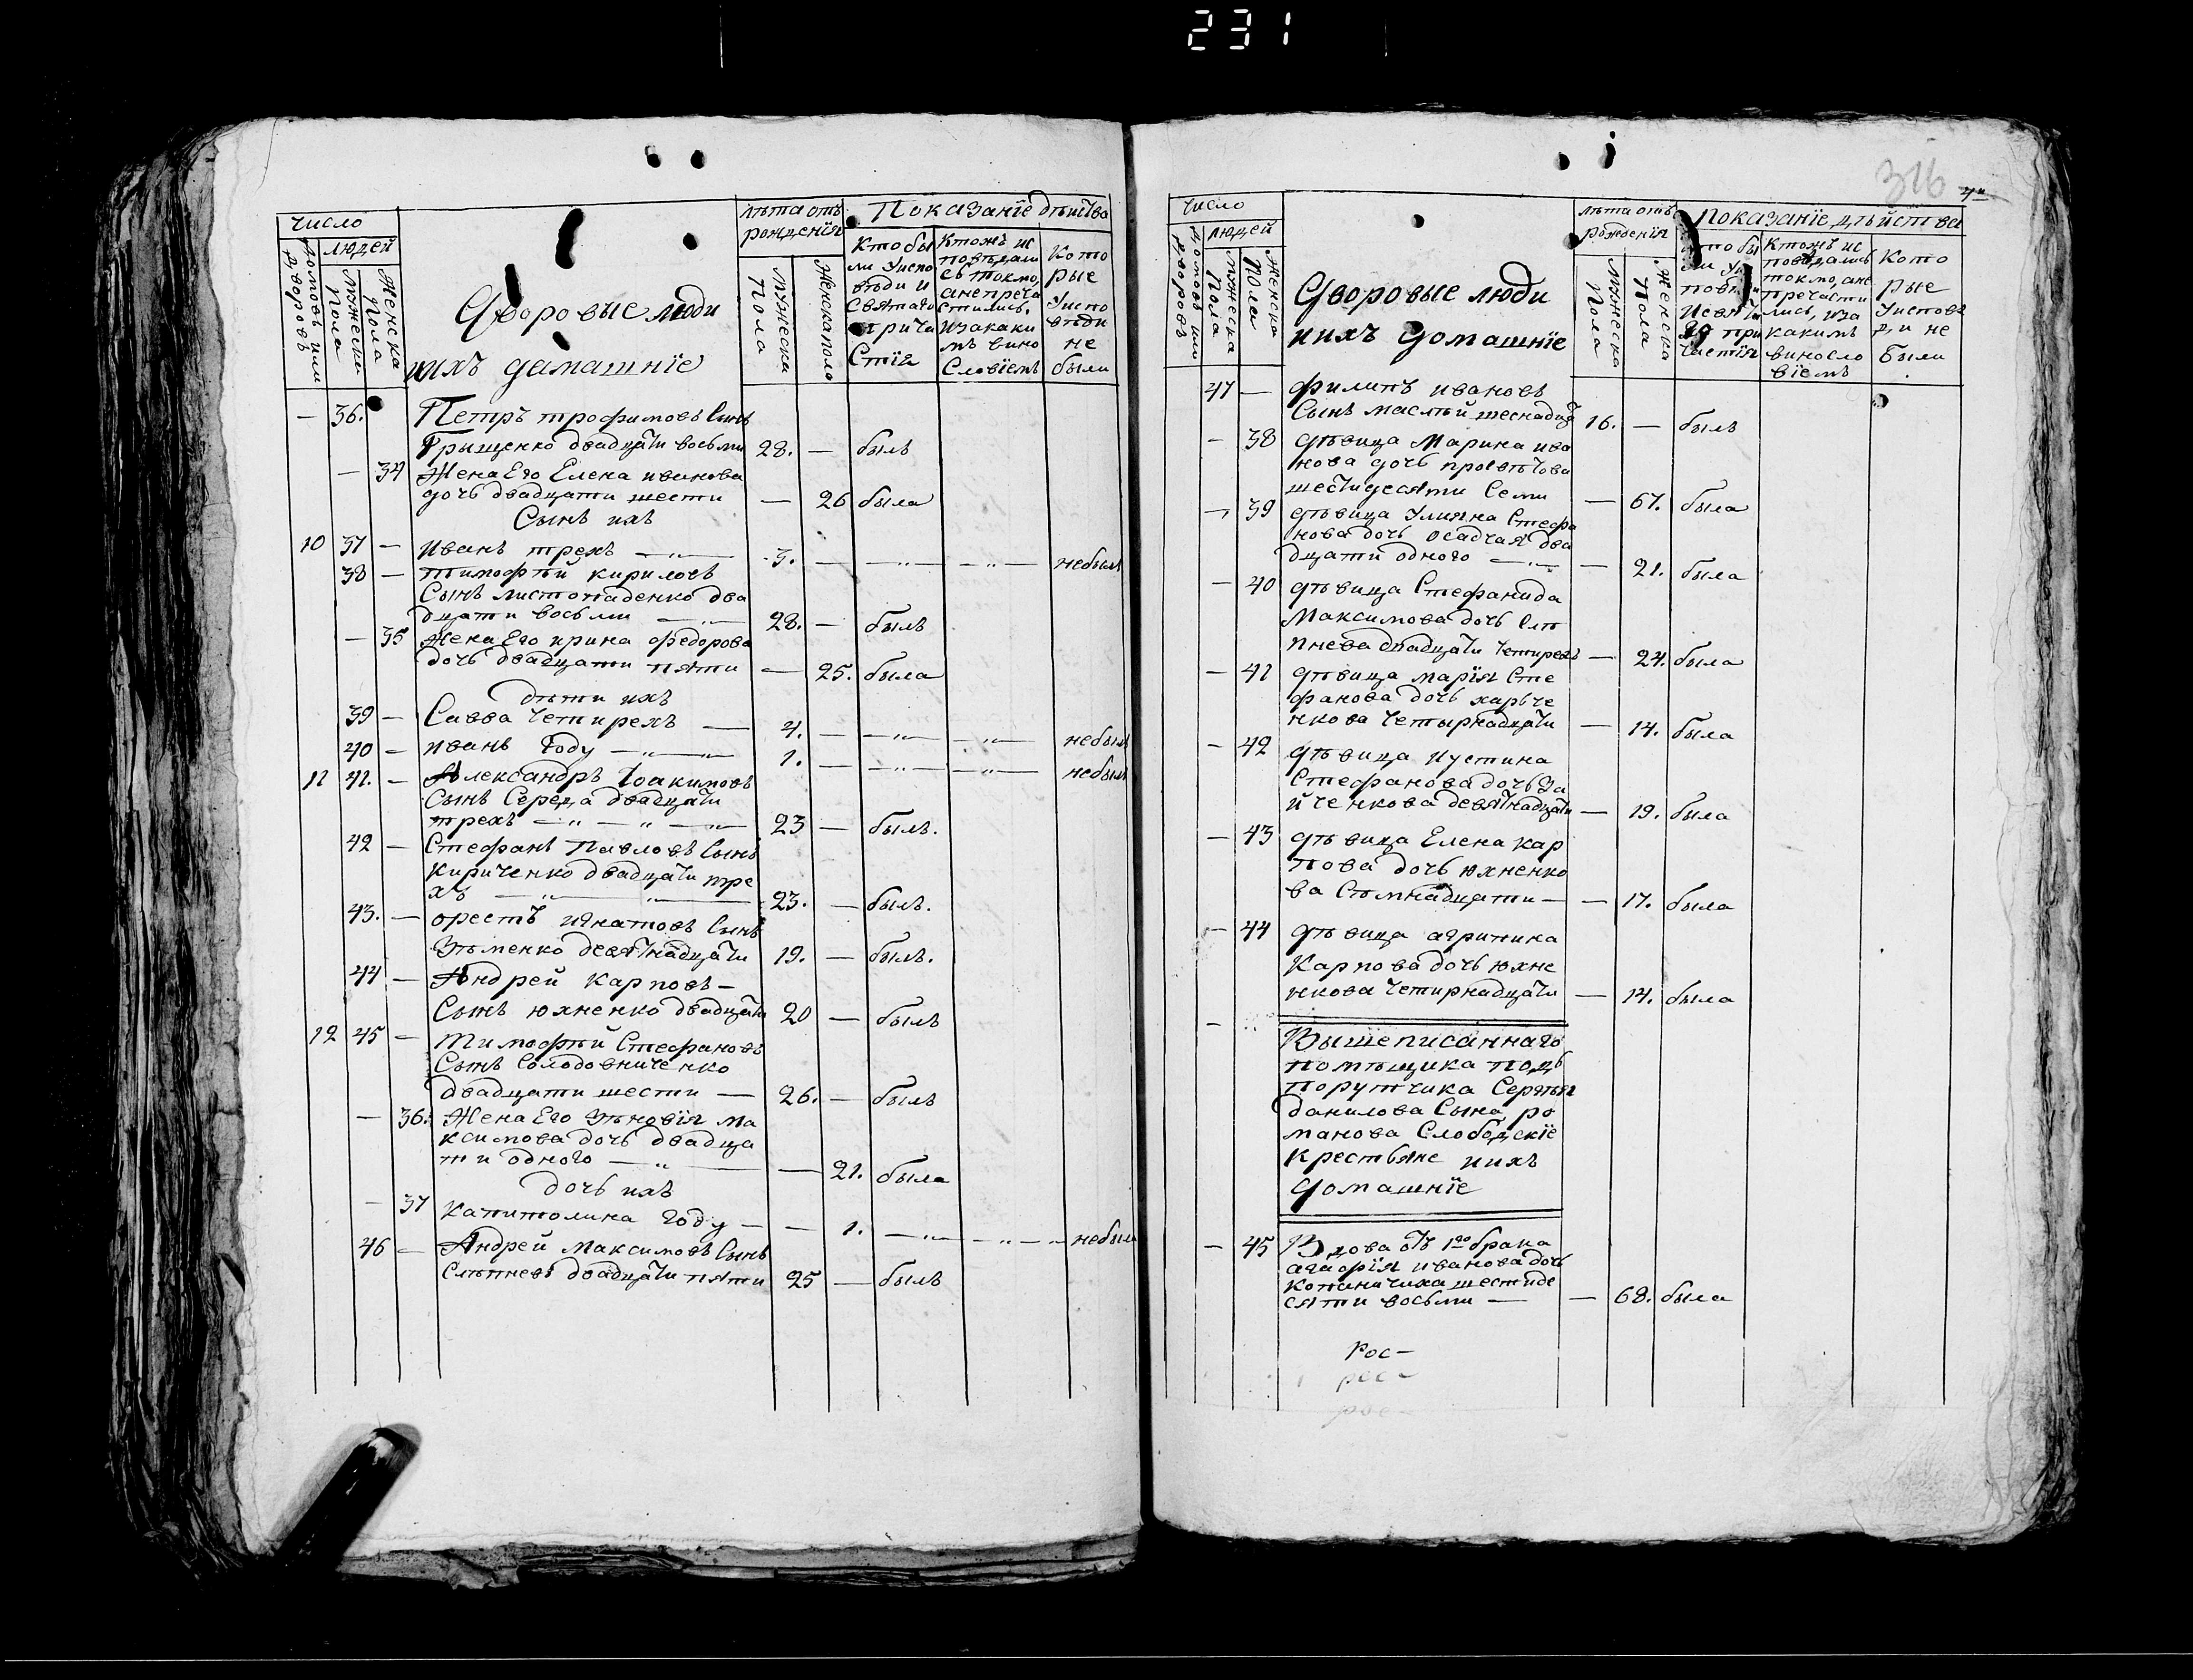 231
число
людей
домовъ или дворовъ
мужеска пола
Женска пола
Дворовые люди
ихъ дамашніе
лѣта отъ
рожденія
мужеска пола
Женска пола
Показаніе дѣиства
Кто бы
ли Уиспо
вѣди и
Святаго
прича
Стія
Ктожъ ис
повѣдали
сь токмо,
анепреча
стились,
изакаки
мъ вино
Словіемъ
Кото
рые
Уиспо
вѣди
не
были
— 36. Петръ трофимовъ Сынъ
Грыщенко двадцати восьми 28. — былъ
— 34 Жена Его Елена иванова
дочь двадцати шести — 26 была
Сынъ ихъ
10 37 — Иванъ трехъ — 3. — небылъ
38 — тимофѣй кириловъ
Сынъ листопаденко два
дцати восьми — 28. — былъ
— 35 Жена Его ирина федорова
дочь двадцати пяти — 25. была
дѣти ихъ
39 — Савва Четирехъ — 4. — небылъ
40 — иванъ году — 1. — небылъ
11 41. — Александръ Іоакимовъ
Сынъ Середа двадцати
трехъ — 23 — былъ.
42 — Стефанъ Павловъ Сынъ
Кириченко двадцати тре
хъ — 23. — былъ.
43. — орестъ игнатовъ Сынъ
Зѣменко девятнадцати 19. — былъ.
44 — Андрей Карповъ —
Сынъ юхненко двадцати 20 — былъ
12 45 — Тимофѣй Стефановъ
Сынъ Солодовниченко
двадцати шести — 26. — былъ
— 36. Жена Его Зѣновія ма
ксимова дочь двадца
ти одного — 21. была
дочь ихъ
— 37 капитолина году — — 1. — небыла
46 — Андрей Максимовъ Сынъ
Слѣпневъ двадцати пяти 25 — былъ
316
число
людей
домовъ или дворовъ
мужеска пола
женска пола
Дворовые люди
иихъ Домашніе
лѣта отъ
рожденія
мужеска пола
Женска пола
Показаніе дѣйства
Ктожъ ис
повѣдались
токмо, ане
причасти
лись, иза
какимъ
виносло
віемъ
Кото
рые
Уиспов
ѣди не
были
47 — филипъ ивановъ
Сынъ маслѣй шеснадца 16. — былъ
— 38 дѣвица Марина ива
нова дочь
шестидесяти Семи — 67. была
— 39 дѣвица Улияна Стефа
нова дочь осадчая два
дцати одного — — 21. была
— 40 дѣвица Стефанида
Максимова дочь Слѣ
пнева двадцати Четирехъ — 24. была
— 41 дѣвица марія Сте
фанова дочь харьче
нкова четырнадцати — 14. была
— 42 дѣвица иустина
Стефанова дочь За
йченкова девятнадцати — 19. была
— 43 дѣвица Елена Кар
пова дочь юхненко
ва Сѣмнадцати — — 17. была
— 44 дѣвица агрипина
Карпова дочь юхне
нкова Четирнадцати — 14. была
Вышеписаннаго
помѣщика подъ
порутчика Сергѣя
данилова Сына ро
манова Слободскіе
крестьяне иихъ
Домашніе
— 45 Вдова отъ 1го брака
агафія иванова дочь
копаничиха шестиде
сяти восьми — — 68. была
Рос—